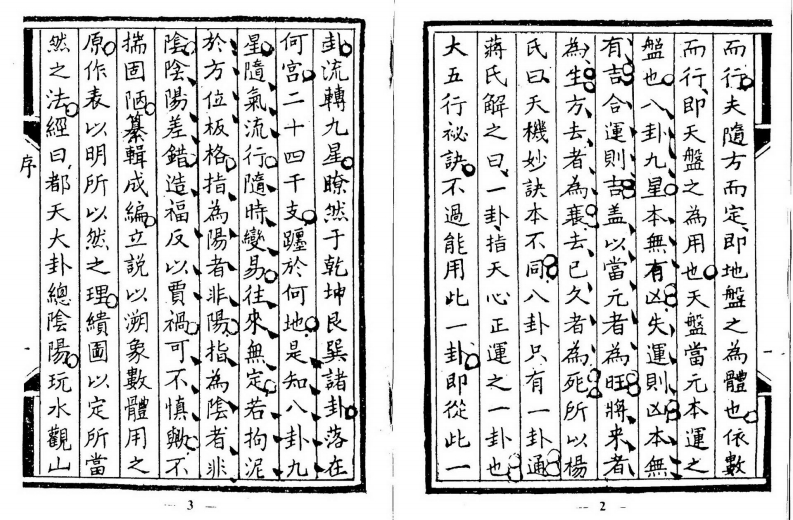 而行夫隨方而定即地盤之為體也依數
而行即天盤之為用也天盤當元本運之
盤也八卦九星本無有凶失運則凶本無
有吉合運則吉盖以當元者為旺將來者
為生方去者為衰去已久者為死所以楊
氏曰天機妙訣本不同八卦只有一卦通
蔣氏解之曰一卦指天心正運之一卦也
大五行祕訣不過能用此一卦即從此一
2
卦流轉九星瞭然于乾坤艮巽諸卦落在
何宮二十四干支躔於何地是知八卦九
星隨氣流行隨時變易往來無定若拘泥
於方位板格指為陽者非陽指為陰者非
陰陰陽差錯造福反以賈禍可不慎歟不
揣固陋纂輯成編立說以溯象數體用之
原作表以明所以然之理繢圖以定所當
然之法經曰都天大卦總陰陽玩水觀山
序
3